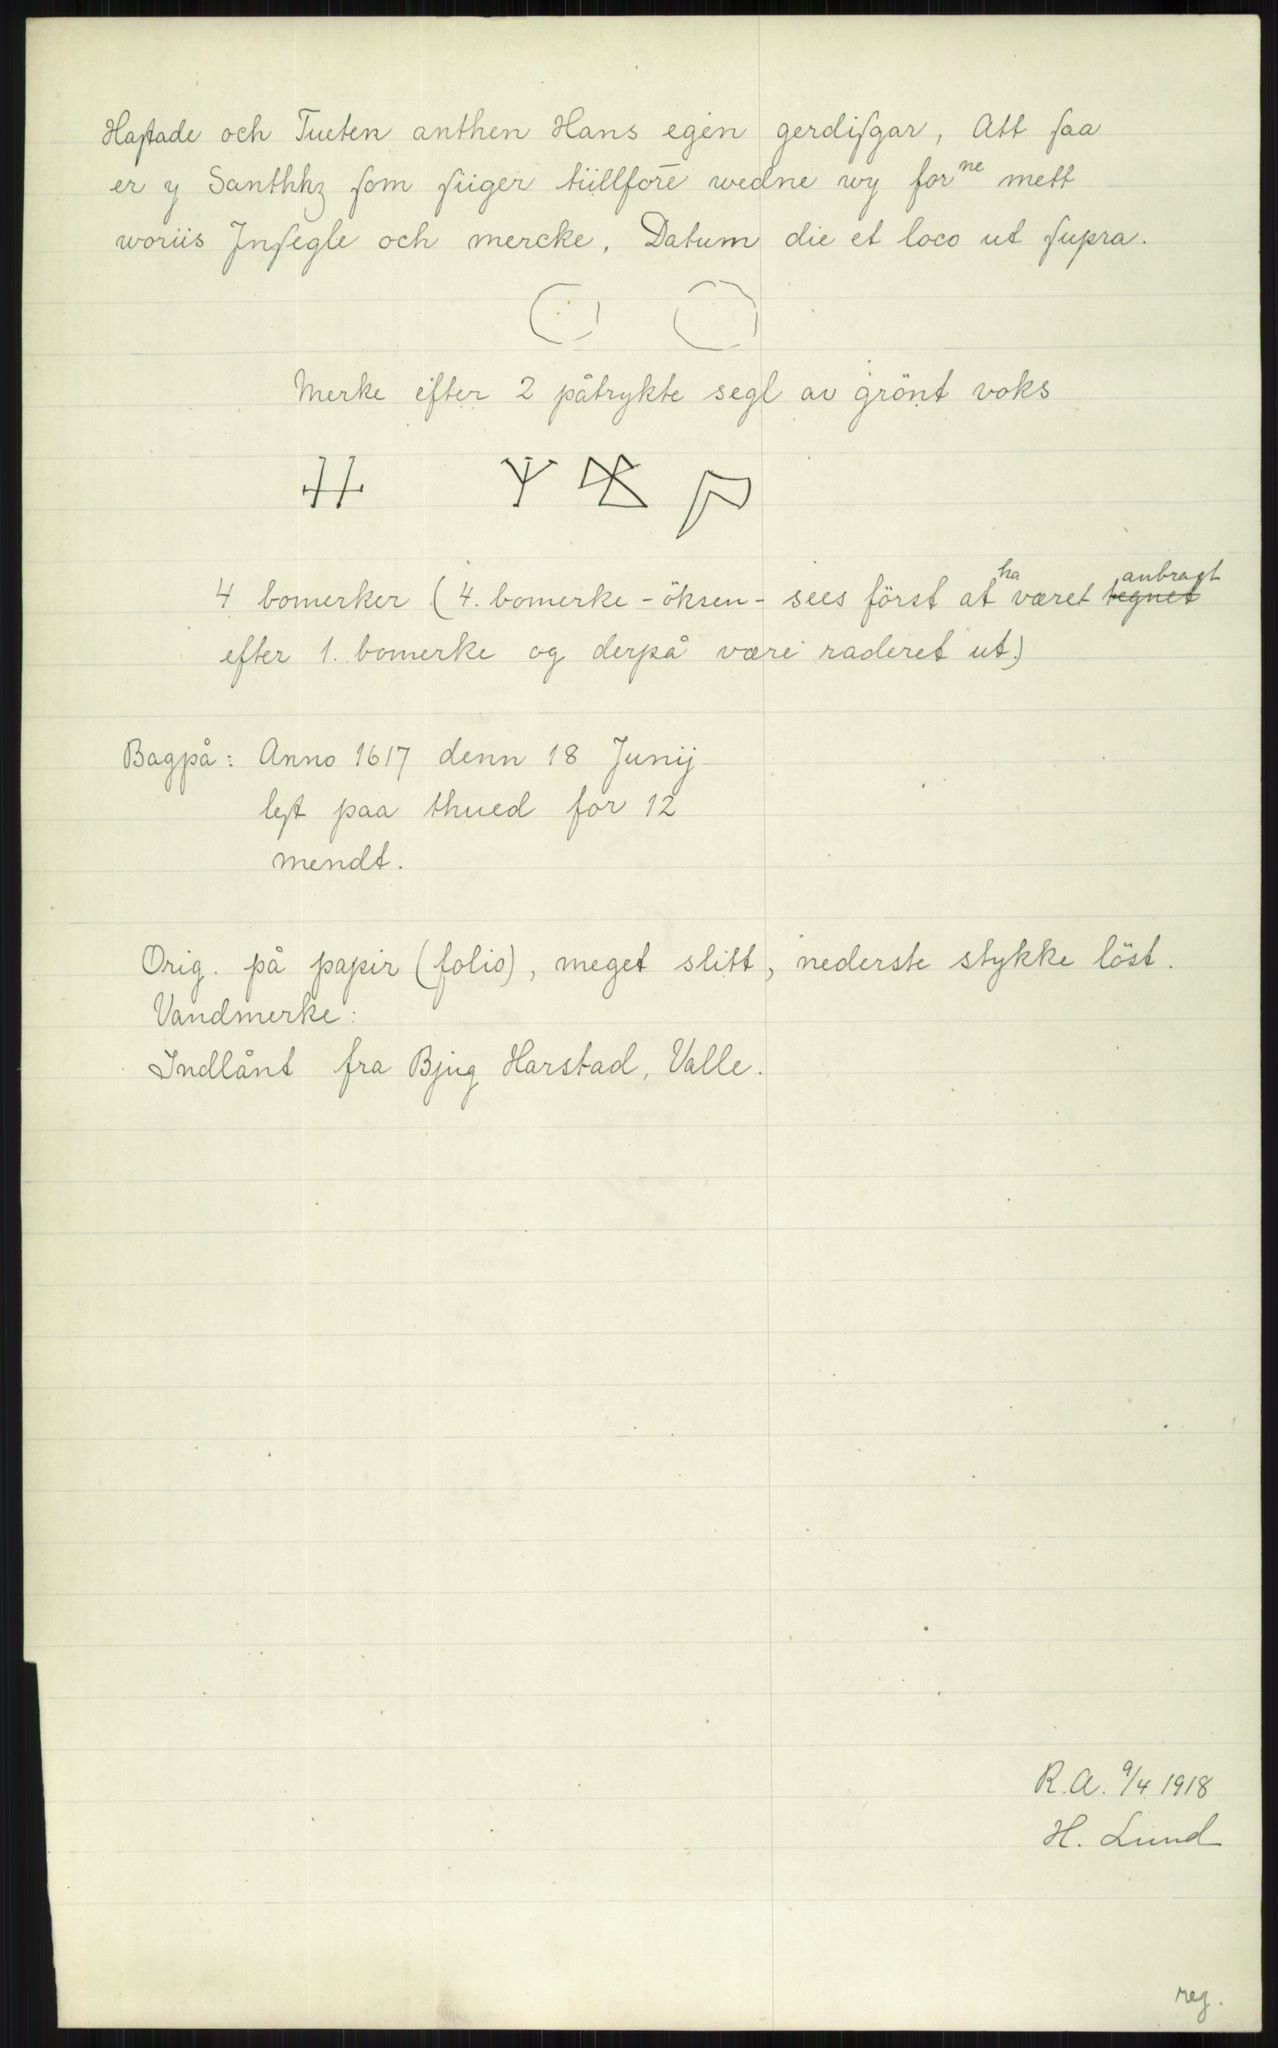 Haſtade och Tueten anthen Hans egen gerdiſgar, Att ſaa
er y Santhhz ſom ſiiger tiillforē wedne wy for ne mett
woriis Jnſegle och mercke, Datum die et loco ut ſupra.
Merke efter 2 påtrykte segl av grönt voks
4 bomerker (4. bomerke - öksen - sees först at ha været tegnet anbragt
efter 1. bomerke og derpå være raderet ut.)
Bagpå: Anno 1617 denn 18 Junij
leſt paa thued for 12
mendt.
Orig. på papir (folio), meget slitt, nederste stykke löst.
Vandmerke:
Indlånt fra Bjug Harstad, Valle.
R.A. 9/4 1918
H. Lund
reg.